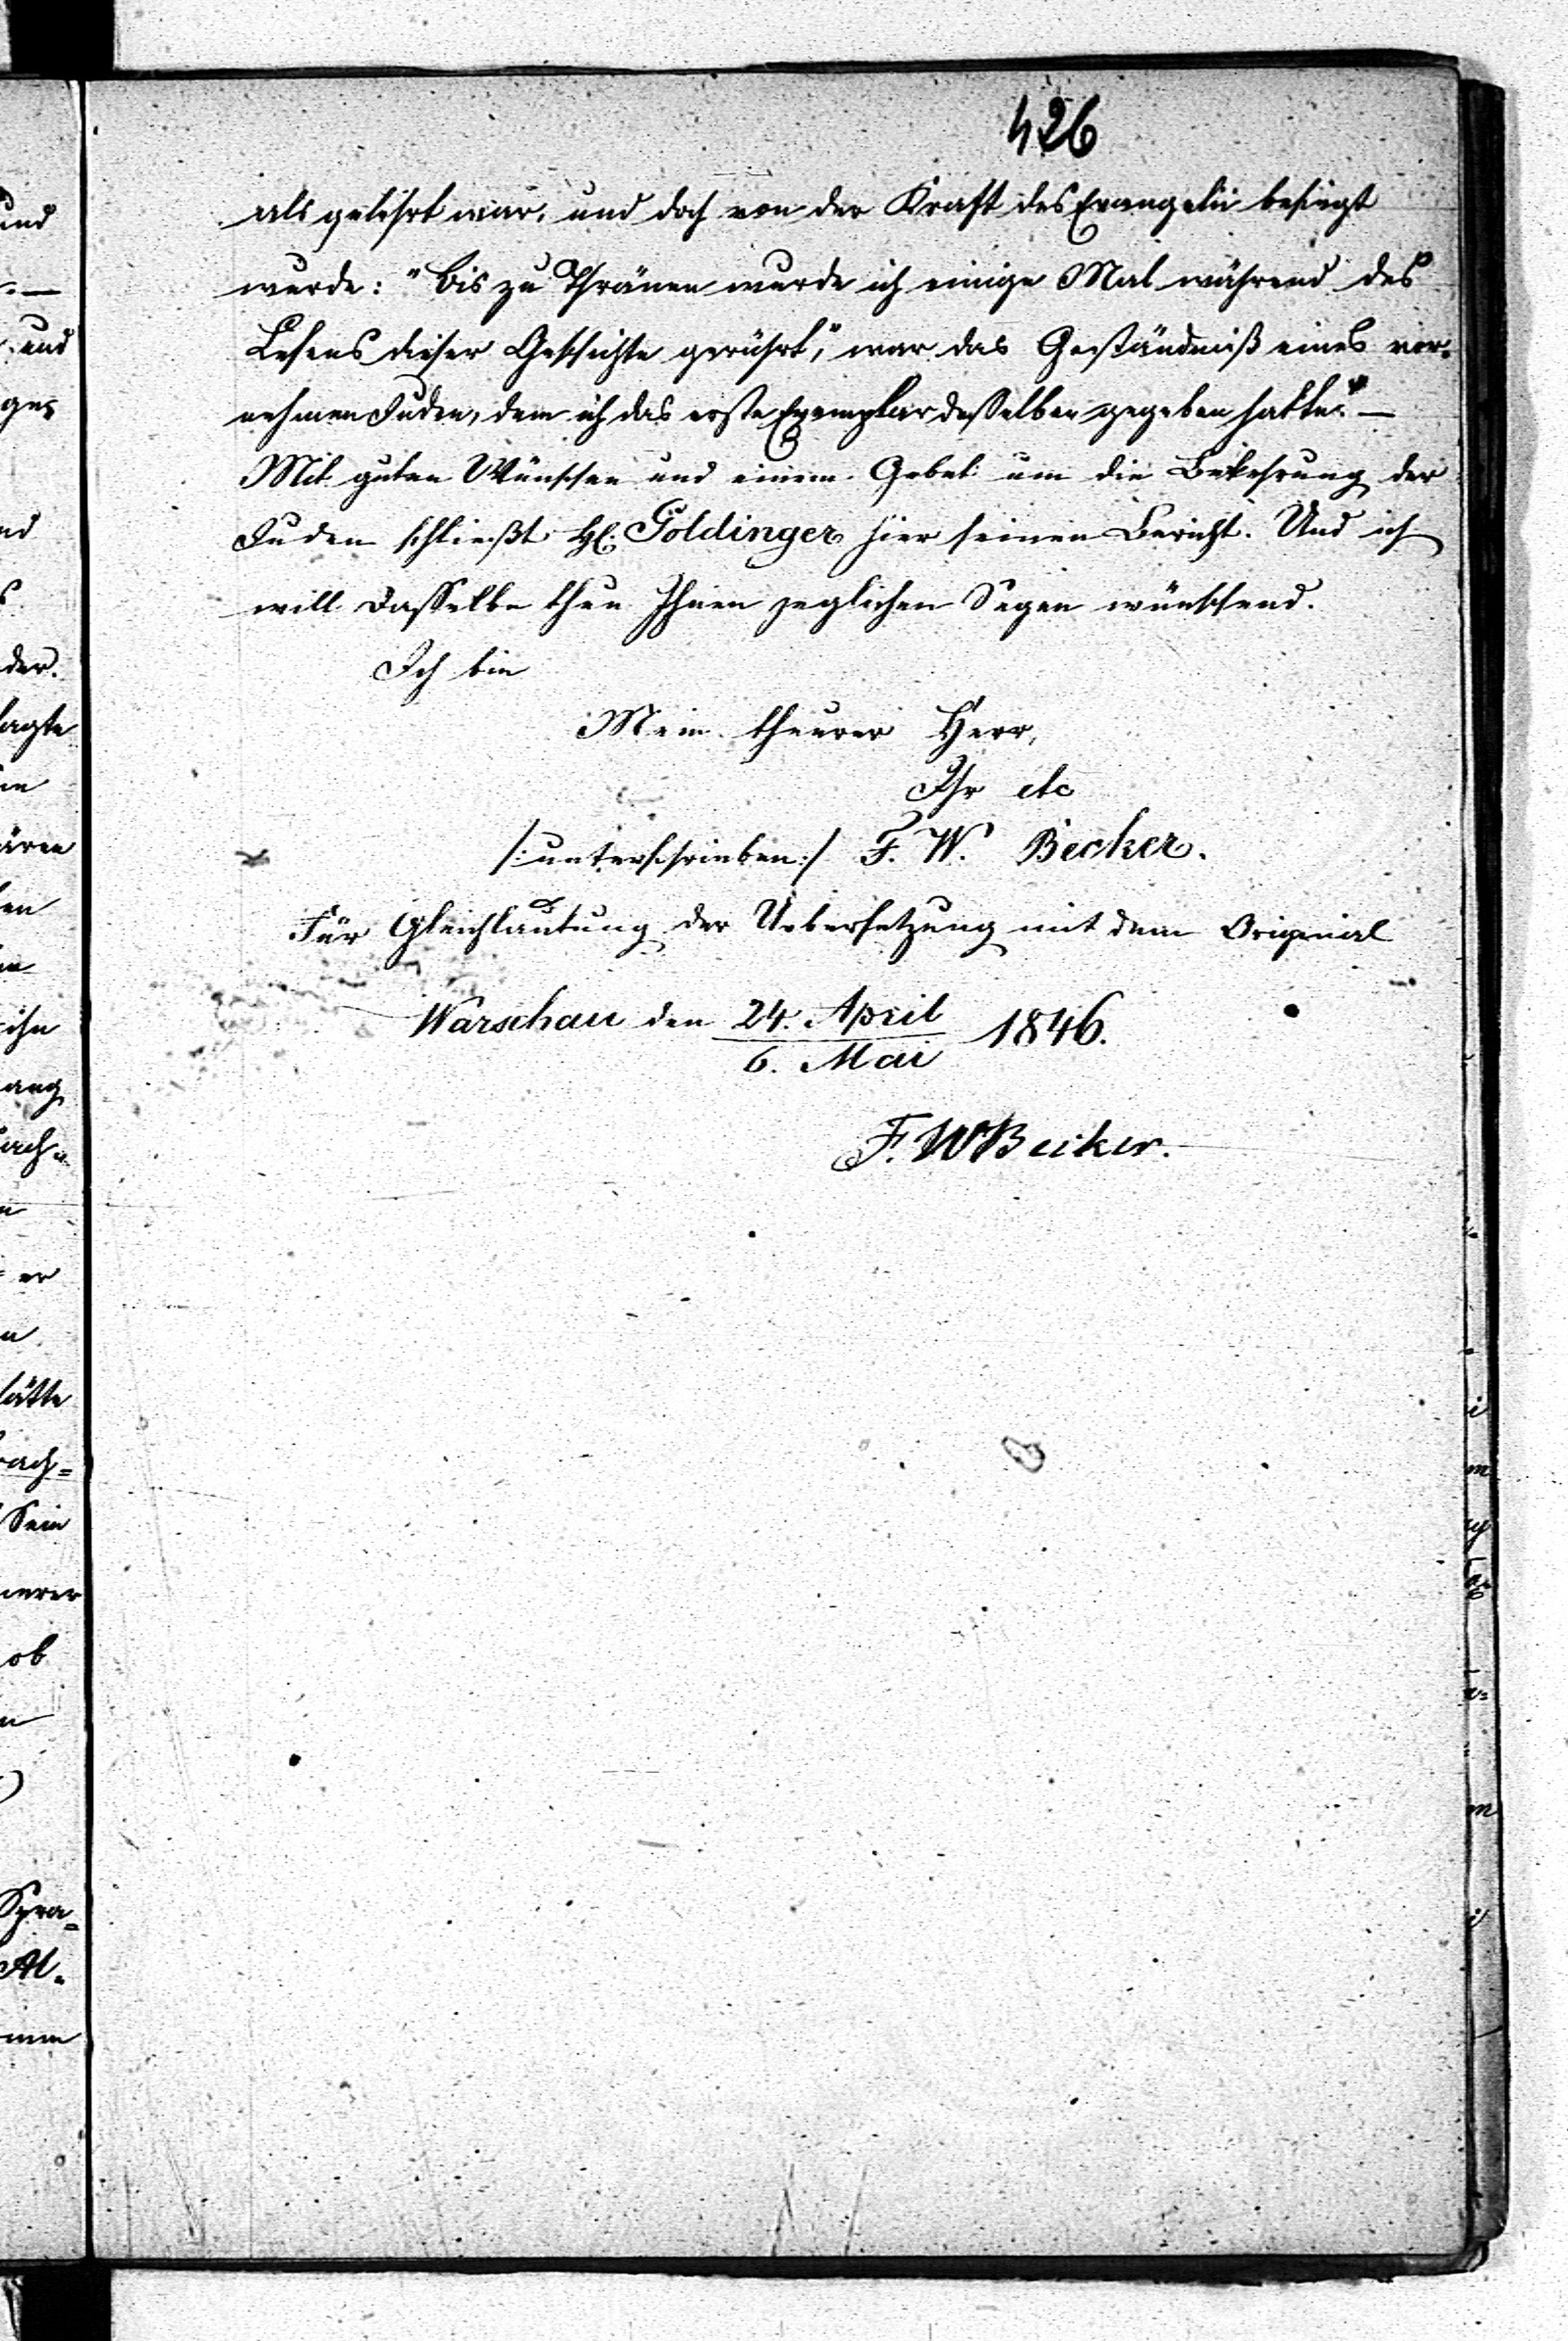 426
als gelehrt war, und doch von der Kraft des Evangelii besiegt
wurde: "bis zu Thränen wurde ich einige Mal während des
Lesens dieser Geschichte gerührt," war das Geständniß eines vor-
nehmen Juden, dem ich das erste Exemplar desselben gegeben hatte." —
Mit guten Wünschen und einem Gebet um die Bekehrung der
Juden schließt H. Goldinger hier seinen Bericht. Und ich
will dasselbe thun Ihnen jeglichen Segen wünschend.
Ich bin
Mein theurer Herr,
Ihr etc
/: unterschrieben :/ F. W. Becker.
Für Gleichlautung der Uebersetzung mit dem Original
Warschau den 24. April / 6. Mai 1846.
F. W Becker.